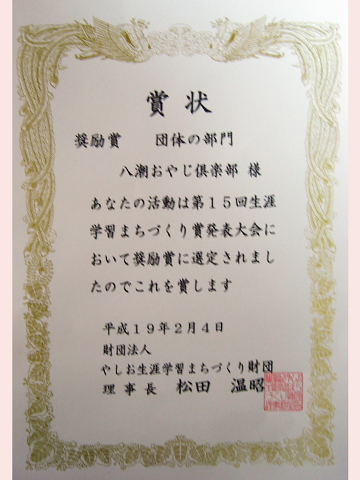 賞状
奨励賞　団体の部門
八潮おやじ倶楽部 様
あなたの活動は第１５回生涯
学習まちづくり賞発表大会に
おいて奨励賞に選定されまし
たのでこれを賞します
平成１９年２月４日
財団法人
やしお生涯学習まちづくり財団
理事長　松田　温昭